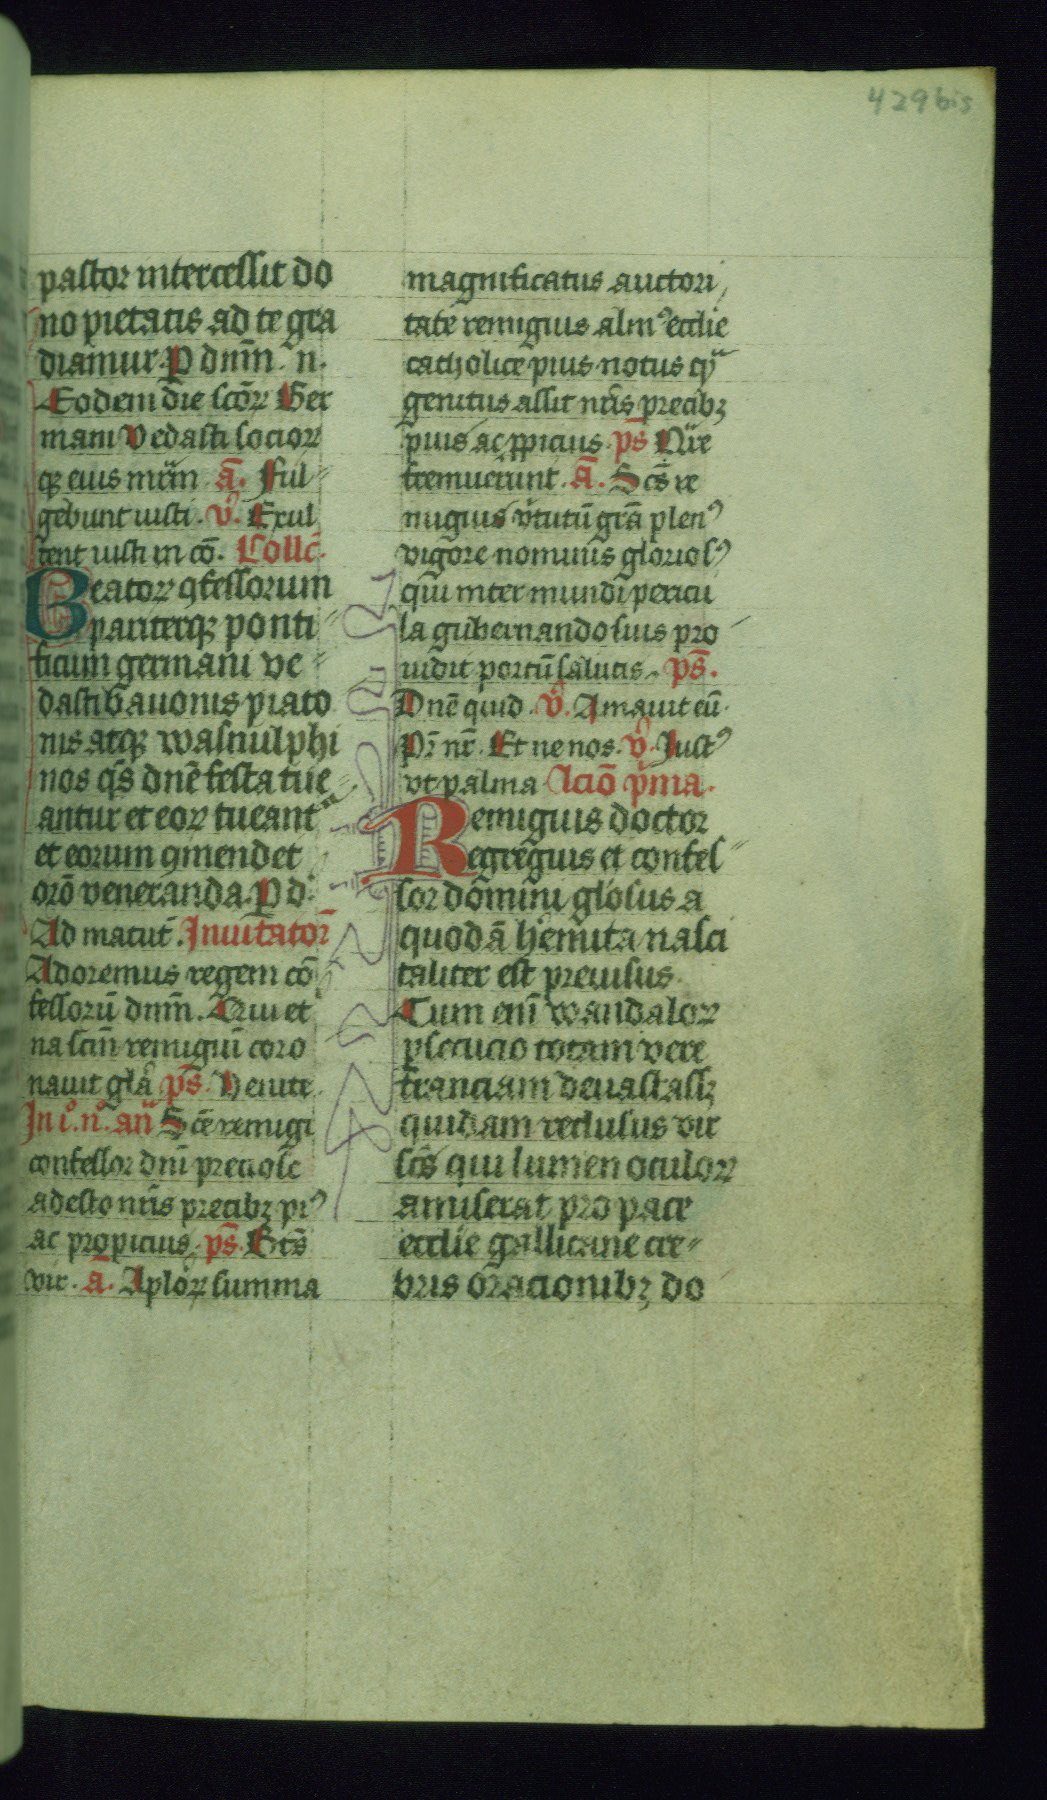 429bis
pastor intercessit do
no pietatis ad te gra
diamur. P dnm̄. n.
Eodem die scōꝝ Ger
mani Vedasti socioꝝ
qꝫ eius mr̄m. ā. Ful-
gebunt iusti. v̊. Exul
tent iusti in cō. Collc̄.
Beatoꝝ ꝯfessorum
pariterqꝫ ponti
ficum germani ve-
dasti bauonis piato
nis atqꝫ wasnulphi
nos qs̄ dnē festa tue
antur et eoꝝ tueant
et eorum ꝯmendet
orō veneranda. P d.
Ad matut̄. Inuitator̄
Adoremus regem cō
fessorū dnm̄. Qui et
na scm̄ remigiū coro
nauit glā ps̄. Venite.
In i̊. n̊. an̄ Scē remigi
confessor dnī preciose
adesto nr̄is precibꝫ piꝰ
ac propicius. ps̄. Btūs
vir. ā. Aploꝝ summa
magnificatus auctori
tate remigius almꝰ ecclie
catholice pius notus qͥ
genitus assit nr̄is precibꝫ
pius ac ꝓpicius. ps̄ Qūre
fremuerunt. ā. Scs̄ re
migius v̓tutū grā plenꝰ
vigore nominis gloriosꝰ
qui inter mundi pericu
la gubernando suis pro
uidit portū salutis. ps̄.
Dnē quid. v̊. Amauit eū.
Pr̄ nr̄. Et ne nos. v̊. Iustꝰ
vt palma Lciō p̄ma.
Remigius doctor
egregius et confes-
sor domini gl̄osus a
quodā h̓emita nasci
taliter est preuisus.
Cum em̄ wandaloꝝ
ꝑsecucio totam vere
franciam deuastassꝫ
quidam reclusus vir
scs̄ qui lumen oculoꝝ
amiserat pro pace
ecclie gallicane cre-
bris oracionibꝫ do